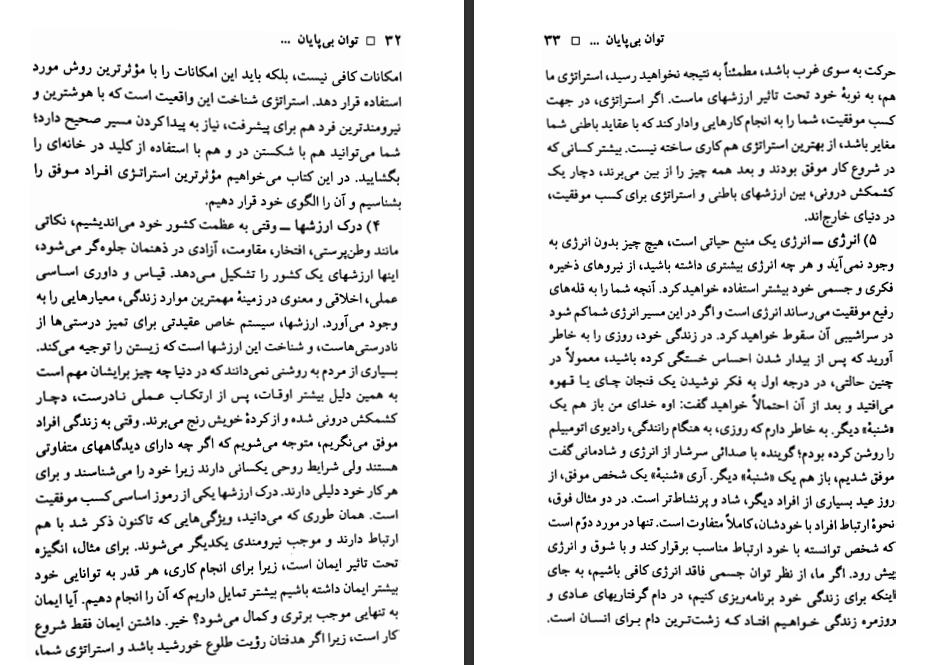 ۳۲ □ توان بی‌پایان ...
امکانات کافی نیست، بلکه باید این امکانات را با مؤثرترین روش مورد
استفاده قرار دهد. استراتژی شناخت این واقعیت است که با هوشترین و
نیرومندترین فرد هم برای پیشرفت، نیاز به پیدا کردن مسیر صحیح دارد؛
شما می‌توانید هم با شکستن در و هم با استفاده از کلید در خانه‌ای را
بگشایید. در این کتاب می‌خواهیم مؤثرترین استراتژی افراد موفق را
بشناسیم و آن را الگوی خود قرار دهیم.
۴) درک ارزشها ــ وقتی به عظمت کشور خود می‌اندیشیم، نکاتی
مانند وطن‌پرستی، افتخار، مقاومت، آزادی در ذهنمان جلوه‌گر می‌شود،
اینها ارزشهای یک کشور را تشکیل می‌دهد. قیاس و داوری اساسی
عملی، اخلاقی و معنوی در زمینهٔ مهمترین موارد زندگی، معیارهایی را به
وجود می‌آورد. ارزشها، سیستم خاص عقیدتی برای تمیز درستی‌ها از
نادرستی‌هاست، و شناخت این ارزشها است که زیستن را توجیه می‌کند.
بسیاری از مردم به روشنی نمی‌دانند که در دنیا چه چیز برایشان مهم است
به همین دلیل بیشتر اوقات، پس از ارتکاب عملی نادرست، دچار
کشمکش درونی شده و از کردهٔ خویش رنج می‌برند. وقتی به زندگی افراد
موفق می‌نگریم، متوجه می‌شویم که اگر چه دارای دیدگاههای متفاوتی
هستند ولی شرایط روحی یکسانی دارند زیرا خود را می‌شناسند و برای
هر کار خود دلیلی دارند. درک ارزشها یکی از رموز اساسی کسب موفقیت
است. همان طوری که می‌دانید، ویژگی‌هایی که تاکنون ذکر شد با هم
ارتباط دارند و موجب نیرومندی یکدیگر می‌شوند. برای مثال، انگیزه
تحت تاثیر ایمان است، زیرا برای انجام کاری، هر قدر به توانایی خود
بیشتر ایمان داشته باشیم بیشتر تمایل داریم که آن را انجام دهیم. آیا ایمان
به تنهایی موجب برتری و کمال می‌شود؟ خیر. داشتن ایمان فقط شروع
کار است، زیرا اگر هدفتان رؤیت طلوع خورشید باشد و استراتژی شما،
توان بی‌پایان ... □ ۳۳
حرکت به سوی غرب باشد، مطمئناً به نتیجه نخواهید رسید، استراتژی ما
هم، به نوبهٔ خود تحت تاثیر ارزشهای ماست. اگر استراتژی، در جهت
کسب موفقیت، شما را به انجام کارهایی وادار کند که با عقاید باطنی شما
مغایر باشد، از بهترین استراتژی هم کاری ساخته نیست. بیشتر کسانی که
در شروع کار موفق بودند و بعد همه چیز را از بین می‌برند، دچار یک
کشمکش درونی، بین ارزشهای باطنی و استراتژی برای کسب موفقیت،
در دنیای خارج‌اند.
۵) انرژی ــ انرژی یک منبع حیاتی است، هیچ چیز بدون انرژی به
وجود نمی‌آید و هر چه انرژی بیشتری داشته باشید، از نیروهای ذخیره
فکری و جسمی خود بیشتر استفاده خواهید کرد. آنچه شما را به قله‌های
رفیع موفقیت می‌رساند انرژی است و اگر در این مسیر انرژی شما کم شود
در سراشیبی آن سقوط خواهید کرد. در زندگی خود، روزی را به خاطر
آورید که پس از بیدار شدن احساس خستگی کرده باشید، معمولاً در
چنین حالتی، در درجه اول به فکر نوشیدن یک فنجان چای یا قهوه
می‌افتید و بعد از آن احتمالاً خواهید گفت: اوه خدای من باز هم یک
«شنبهٔ» دیگر. به خاطر دارم که روزی، به هنگام رانندگی، رادیوی اتومبیلم
را روشن کرده بودم؛ گوینده با صدائی سرشار از انرژی و شادمانی گفت
موفق شدیم، باز هم یک «شنبهٔ» دیگر. آری «شنبهٔ» یک شخص موفق، از
روز عید بسیاری از افراد دیگر، شاد و پرنشاط‌تر است. در دو مثال فوق،
نحوهٔ ارتباط افراد با خودشان، کاملاً متفاوت است. تنها در مورد دوّم است
که شخص توانسته با خود ارتباط مناسب برقرار کند و با شوق و انرژی
پیش رود. اگر ما، از نظر توان جسمی فاقد انرژی کافی باشیم، به جای
اینکه برای زندگی خود برنامه‌ریزی کنیم، در دام گرفتاریهای عادی و
روزمره زندگی خواهیم افتاد که زشت‌ترین دام برای انسان است.